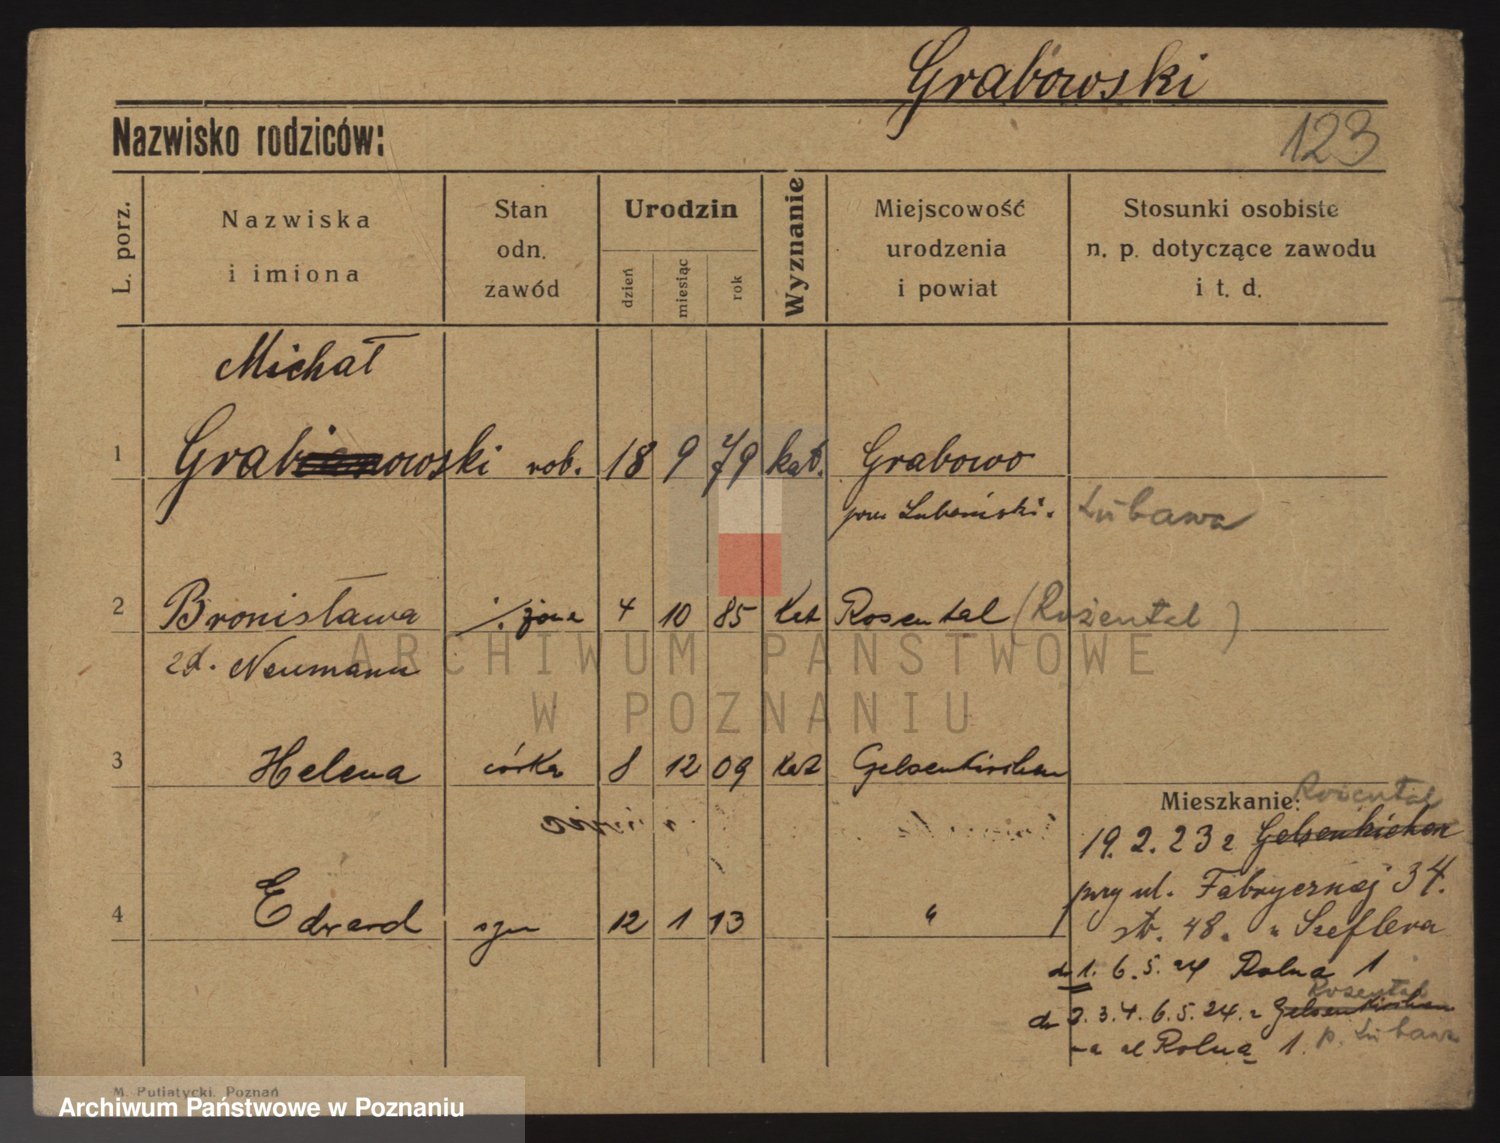 Grabowski
Nazwisko rodziców:
123
L. porz.
Nazwiska
i imiona
Stan
odn.
zawód
Urodzin
dzień
miesiąc
rok
Wyznanie
Miejscowość
urodzenia
i powiat
Stosunki osobiste
n. p. dotyczące zawodu
i t. d.
Michał
1 Grabowski rob. 18 9 79 kat. Grabowo
pow Lubawski. Lubawa
2 Bronisława żona 4 10 85 Kat Rosental (Rożental)
zd. Neumann
3 Helena córka 8 12 09 Kat Gelsenkirchen
Mieszkanie: Rożental
19.2.23 z Gelsenkichen
przy ul. Fabrycznej 34.
4 Edward syn 12 1 13 "
st. 48. " Szeflera
do 1. 6.5.24 Rolna 1
Rosental
do 2.3.4. 6.5.24. z Gelsenkirchen
na ul Rolną 1. p. Lubawa
ARCHIWUM PAŃSTWOWE
W POZNANIU
M. Putiatycki, Poznań
Archiwum Państwowe w Poznaniu